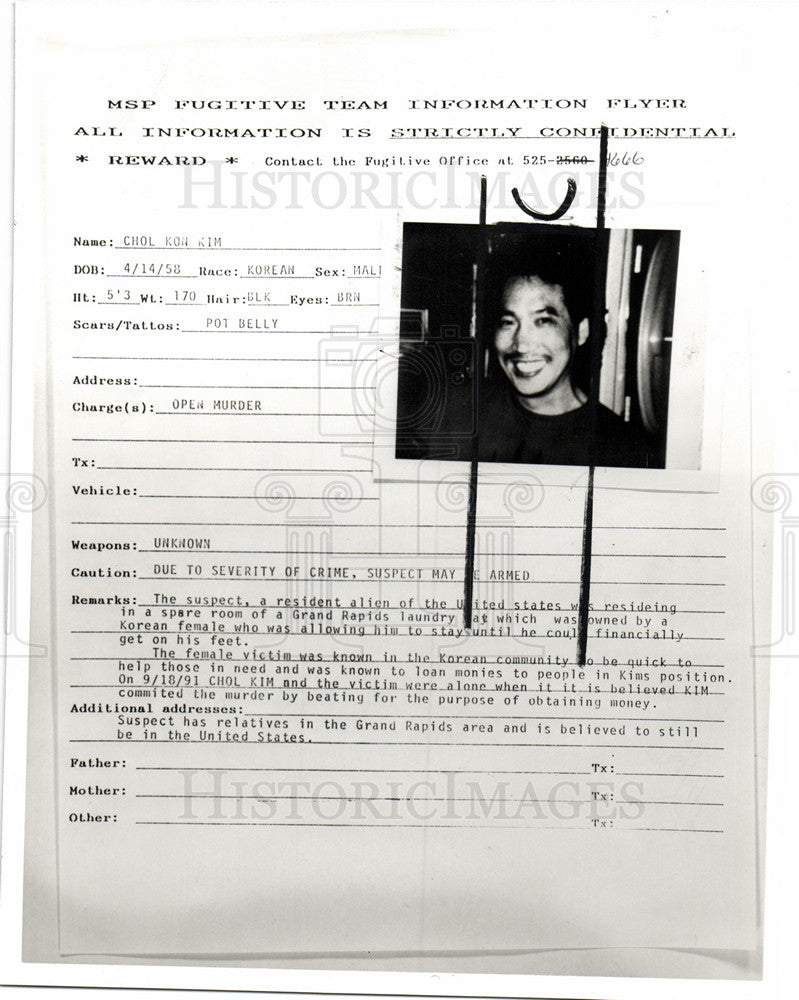 MSP FUGITIVE TEAM INFORMATION FLYER
ALL INFORMATION IS STRICTLY CONFIDENTIAL
* REWARD * Contact the Fugitive Office at 525-2560 4666
HISTORICIMAGES
Name: CHOL KON KIM
DOB: 4/14/58 Race: KOREAN Sex: MALE
Ht: 5'3 Wt: 170 Hair: BLK Eyes: BRN
Scars/Tattos: POT BELLY
Address:
Charge(s): OPEN MURDER
Tx:
Vehicle:
Weapons: UNKNOWN
Caution: DUE TO SEVERITY OF CRIME, SUSPECT MAY BE ARMED
Remarks: The suspect, a resident alien of the United states was resideing
in a spare room of a Grand Rapids laundry mat which was owned by a
Korean female who was allowing him to stay until he could financially
get on his feet.
The female victim was known in the Korean community to be quick to
help those in need and was known to loan monies to people in Kims position.
On 9/18/91 CHOL KIM and the victim were alone when it it is believed KIM
commited the murder by beating for the purpose of obtaining money.
Additional addresses:
Suspect has relatives in the Grand Rapids area and is believed to still
be in the United States.
Father: Tx:
Mother: Tx:
HISTORICIMAGES
Other: Tx: